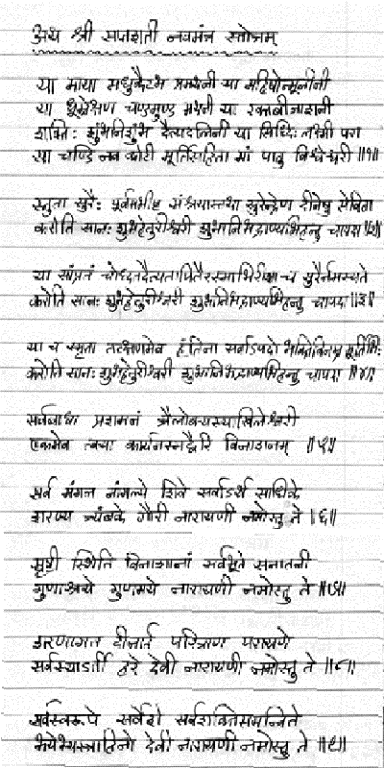 अथ श्री सप्तशती नवमंत्र स्तोत्रम्
या माया मधुकैटभ प्रमथनी या महिषोन्मूलीनी
या धूम्रेक्षण चण्डमुण्ड मथनी या रक्तबीजाशनी
शक्तिः शुंभनिशुंभ दैत्यदलिनी या सिध्दि लक्ष्मी परा
सा चण्डि नव कोटी मूर्तिसहिता मां पातु विश्वेश्वरी ॥१॥
स्तुता सुरैः पूर्वमभीष्ट संश्रयात्तथा सुरेन्द्रेण दिनेषु सेविता
करोति सानः शुभहेतुरीश्वरी शुभानिभद्राण्यभिहन्तु चापदः ॥२॥
या सांप्रतं चोध्दतदैत्यतापितैरस्माभिरीशा च सुरैर्नमस्यते
करोति सानः शुभहेतुरीश्वरी शुभानिभद्राण्यभिहन्तु चापदः ॥३॥
या च स्मृता तत्क्षणमेव हंतिनः सर्वाऽपदो भक्तिविनम्र मूर्तिभिः
करोति सानः शुभहेतुरीश्वरी शुभानिभद्राण्यभिहन्तु चापदः ॥४॥
सर्वबाधा प्रशमनं त्रैलोक्यस्याखिलेश्वरी
एकमेव त्वया कार्यमस्मद्वैरि विनाशनम् ॥५॥
सर्व मंगल मांगल्ये शिवे सर्वाऽर्थ साधिके
शरण्ये त्र्यंबके गौरी नारायणी नमोस्तु ते ॥६॥
सृष्टी स्थिति विनाशानां सर्वभूते सनातनी
गुणाश्रये गुणमये नारायणी नमोस्तु ते ॥७॥
शरणागत दीनार्त परित्राण परायणे
सर्वस्याऽर्ती हरे देवी नारायणी नमोस्तु ते ॥८॥
सर्वस्वरूपे सर्वेशे सर्वशक्तिसमन्विते
भयेभ्यस्त्राहिनो देवी नारायणी नमोस्तु ते ॥९॥